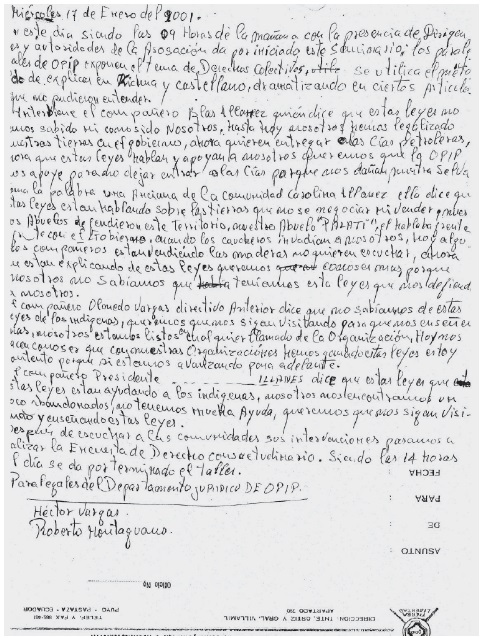 Miércoles 17 de Enero del 2001.
este día siendo las 09 Horas de la mañana con la presencia de Dirigen
es y autoridades de la Asosación da por iniciado este Seminario, los parale
ales de OPIP exponen el tema de Derechos Colectivos, se utilica el metó
do de explicar en Kichua y castellano, dramatizando en ciertos Articulo
que no pudieron entender.
Interviene el compañero Blas Illanez quien dice que estas leyes no
mos sabido ni conosido Nosotros, hasta hoy nosotros hemos legalicado
nuestras tierras en el gobierno, ahora quieren entregar a las Cias petroleras,
hora que estas leyes hablan y apoyan a nosotros queremos que la OPIP
os apoye para no dejar entrar a las Cias porque nos dañan nuestra Selva
ma la palabra una Anciana de la comunidad Carolina Illanez ella dice que
tas leyes estan hablando sobre las tierras que no se negociar ni vender, nues
os Abuelos defendieron este territorio, nuestro Abuelo "PALATI", el hablaba frente
frente con el Gobierno, cuando los caucheros invadian a nosotros, hoy algu
los compañeros estan vendiendo las maderas no quieren escuchar, ahora
u estan explicando de estas leyes queremos conocer mas porque
nosotros no sabiamos que teniamos esta ley que nos defienda
a nosotros.
l compañero Olmedo Vargas directivo Anterior dice que no sabiamos de estas
eyes de los indigenas, queremos que nos sigan visitando para que nos enseñen
mas, nosotros estamos listos cualquier llamado de la Organización, Hoy nos
acen conoser que con nuestras Organizaciones hemos ganado estas leyes estoy
contento porque si estamos avanzando para adelante.
l compañero Presidente ILLANES dice que estas leyes que
stas leyes estan ayudando a los indigenas, nosotros nos encontramos un
oco abandonados, no tenemos mucha Ayuda, queremos que nos sigan visi-
tando y enseñando estas leyes.
espués de escuchar a las comunidades sus intervenciones pasamos a
alizar la Encuesta de Derecho consuetudinario. Siendo las 14 Horas
l día se da por terminado el taller.
Paralegales del Departamento JURIDICO DE OPIP.
Héctor Vargas.
Roberto Montaguano.
FECHA :
PARA :
DE :
ASUNTO :
Oficio No
DIRECCION: TNTE. ORTIZ Y GRAL. VILLAMIL
APARTADO 790
TELEF. Y FAX
PUYO - PASTAZA - ECUADOR